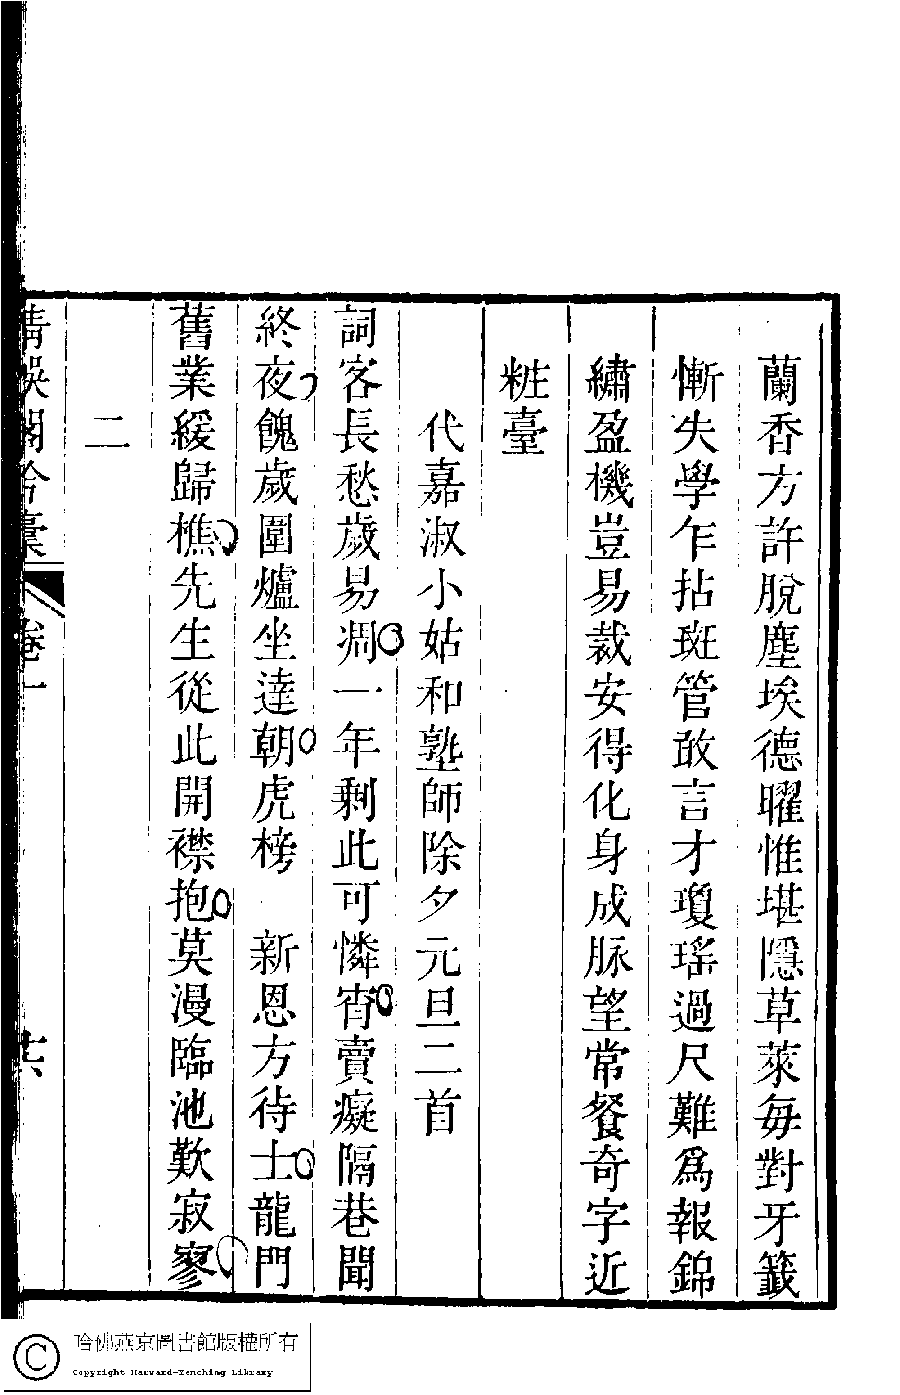 蘭香方許脫塵埃德曜惟堪隱草萊每對牙籤
慚失學乍拈斑管敢言才瓊瑤過尺難爲報錦
繡盈機豈易裁安得化身成脉望常餐奇字近
粧臺
代嘉淑小姑和塾師除夕元旦二首
詞客長愁歲易凋一年剩此可憐宵賣癡隔巷聞
終夜餽歲圍爐坐達朝虎榜 新恩方待士龍門
舊業緩歸樵先生從此開襟抱莫漫臨池歎寂寥
二
清娛閣吟稾 卷一 六
哈佛燕京圖書館版權所有
Copyright Harvard-Yenching Library